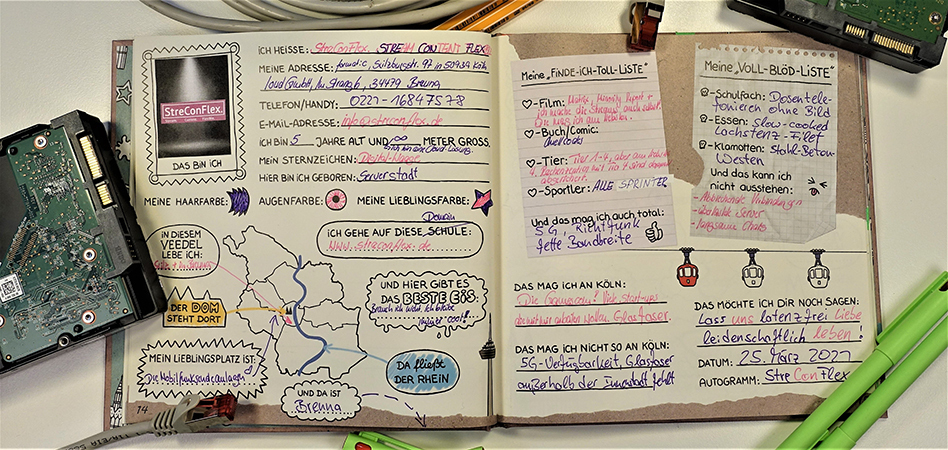 StreConFlex.
DAS BIN ICH
ICH HEISSE: StreConFlex, STREAM CONTENT FLEX
MEINE ADRESSE: Sülzburgstr. 97 in 50939 Köln
34479 Breuna
TELEFON/HANDY: 0221-16847578
E-MAIL-ADRESSE: info@streconflex.de
ICH BIN 5 JAHRE ALT UND ∞ METER GROSS,
MEIN STERNZEICHEN: Digital-Nappe
HIER BIN ICH GEBOREN: Serverstadt
MEINE HAARFARBE:
AUGENFARBE:
MEINE LIEBLINGSFARBE:
IN DIESEM
VEEDEL
LEBE ICH:
ICH GEHE AUF DIESE SCHULE:
www.streconflex.de
DER DOM
STEHT DORT
UND HIER GIBT ES
DAS BESTE EIS:
cool!
MEIN LIEBLINGSPLATZ IST:
Die Mobilfunksendeanlagen
DA fließt
DER RHEIN
UND DA IST
Breuna
74
Meine „FINDE-ICH-TOLL-LISTE"
-Film:
-Buch/Comic:
-Tier: Tier 1-4, aber
-Sportler: ALLE SPRINTER
Und das mag ich auch total:
5G, Richtfunk
fette Bandbreite
Meine „VOLL-BLÖD-LISTE"
-Schulfach: Dosentele-
fonieren ohne Bild
-Essen: Slow-cooked
Lochstenz-Filet
-Klamotten: Stahl-Beton-
Westen
Und das kann ich
nicht ausstehen:
- Abbrechende Verbindungen
- überlastete Server
- langsame Chats
DAS MAG ICH AN KÖLN:
Die Gamescom! Viele Start-ups
die mit mir arbeiten wollen. Glasfaser.
DAS MAG ICH NICHT SO AN KÖLN:
5G-Verfügbarkeit, Glasfaser
außerhalb der Innenstadt fehlt
DAS MÖCHTE ICH DIR NOCH SAGEN:
Lass uns latenzfrei Liebe
leidenschaftlich leben!
DATUM: 25. März 2021
AUTOGRAMM: StreConFlex